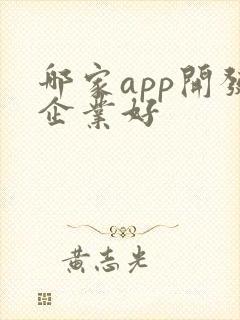 那家app開發
企業好
黃志光